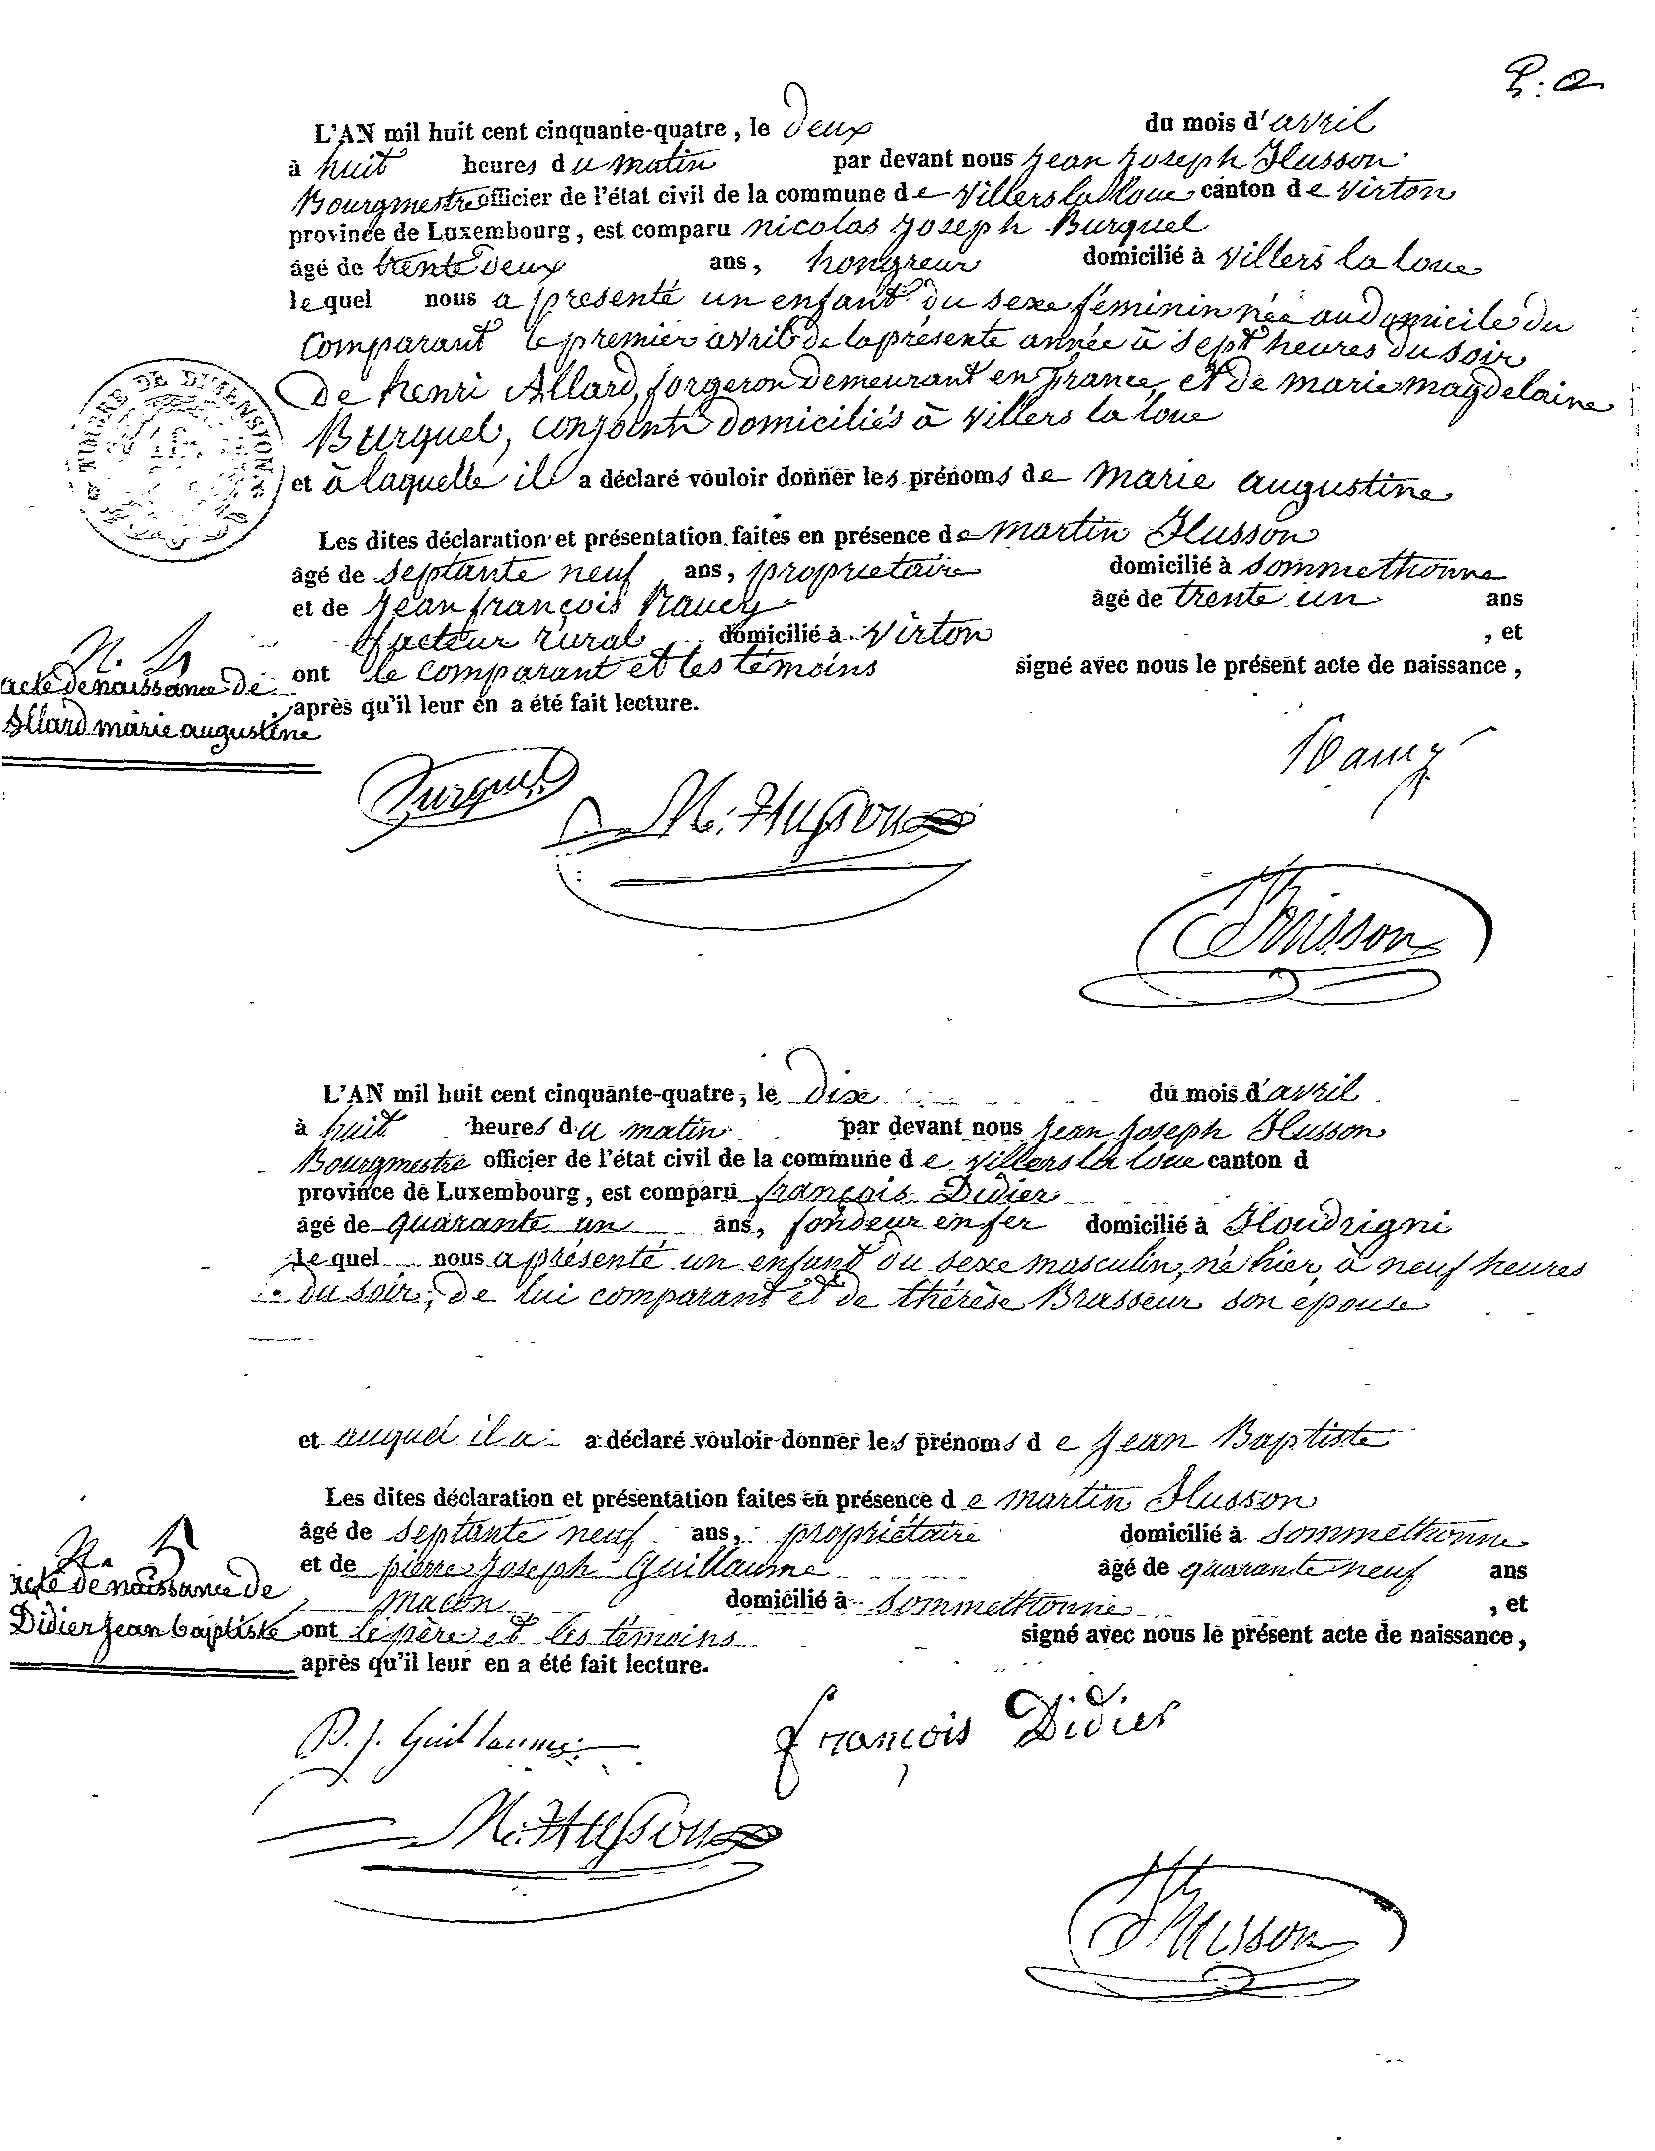 P. 2.
L'AN mil huit cent cinquante-quatre, le deux du mois d'avril
à huit heures du matin par devant nous jean joseph Husson
Bourgmestre officier de l'état civil de la commune de villers la loue canton de virton
province de Luxembourg, est comparu nicolas joseph Burquel
âgé de trente deux ans, hongreur domicilié à villers la loue
lequel nous a présenté un enfant du sexe féminin née au domicile du
comparant le premier avril de la présente année à sept heures du soir
de henri Allard, forgeron demeurant en france, et de marie magdelaine
Burquel, conjoints domiciliés à villers la loue
et à laquelle il a déclaré vouloir donner les prénoms de marie augustine
TIMBRE DE DIMENSION
Les dites déclaration et présentation faites en présence de martin Husson
âgé de septante neuf ans, propriétaire domicilié à sommethonne
et de jean françois Raucy âgé de trente un ans
facteur rural domicilié à virton , et
ont le comparant et les témoins signé avec nous le présent acte de naissance,
après qu'il leur en a été fait lecture.
N. 4
acte de naissance de
Allard marie augustine
Raucy
Burquel M. Husson
Husson
L'AN mil huit cent cinquante-quatre, le dix du mois d'avril
à huit heures du matin par devant nous jean joseph Husson
Bourgmestre officier de l'état civil de la commune de villers la loue canton d
province de Luxembourg, est comparu françois Didier
âgé de quarante un ans, fondeur en fer domicilié à Houdrigni
lequel nous a présenté un enfant du sexe masculin, né hier, à neuf heures
du soir, de lui comparant et de thérèse Brasseur son épouse
et auquel il a a déclaré vouloir donner les prénoms de jean Baptiste
Les dites déclaration et présentation faites en présence de martin Husson
âgé de septante neuf ans, propriétaire domicilié à sommethonne
et de pierre joseph Guillaume âgé de quarante neuf ans
macon domicilié à sommethonne , et
ont le père et les témoins signé avec nous le présent acte de naissance,
après qu'il leur en a été fait lecture.
N. 5
acte de naissance de
Didier jean baptiste
P. J. Guillaume françois Didier
M. Husson
Husson